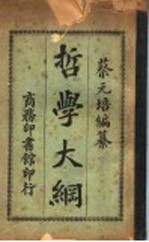 蔡元培編纂
哲學大綱
商務印書館印行